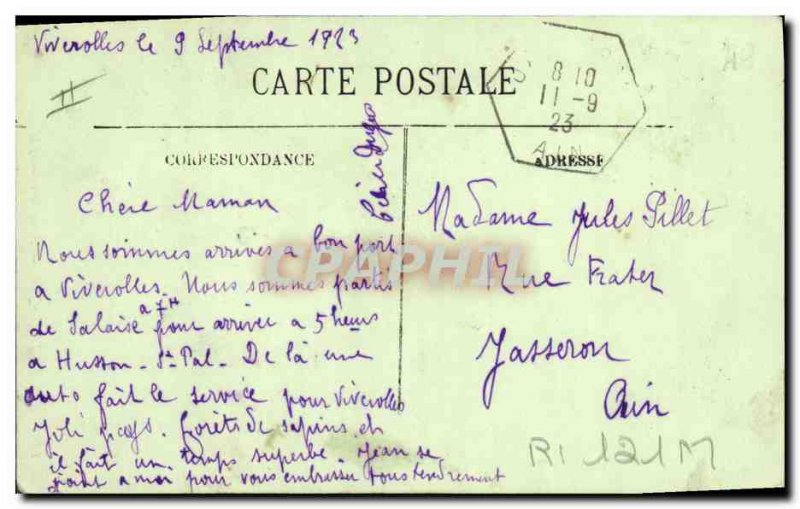 Viverolles le 9 Septembre 1923
II
CARTE POSTALE
8 10
11 -9
23
AIN
CORRESPONDANCE
ADRESSE
Chère Maman
Nous sommes arrivés a bon port
a Viverolles. Nous sommes partis
de Salaise a 7H pour arriver a 5 heures
a Husson - St Pal. De là une
auto fait le service pour Viverolles
Joli pays. Forêts de sapins et
il fait un temps superbe. Jean se
joint a moi pour vous embrasser tous tendrement
Madame Jules Pillet
Rue Frater
Jasseron
Ain
CPAPHIL
RI 121M